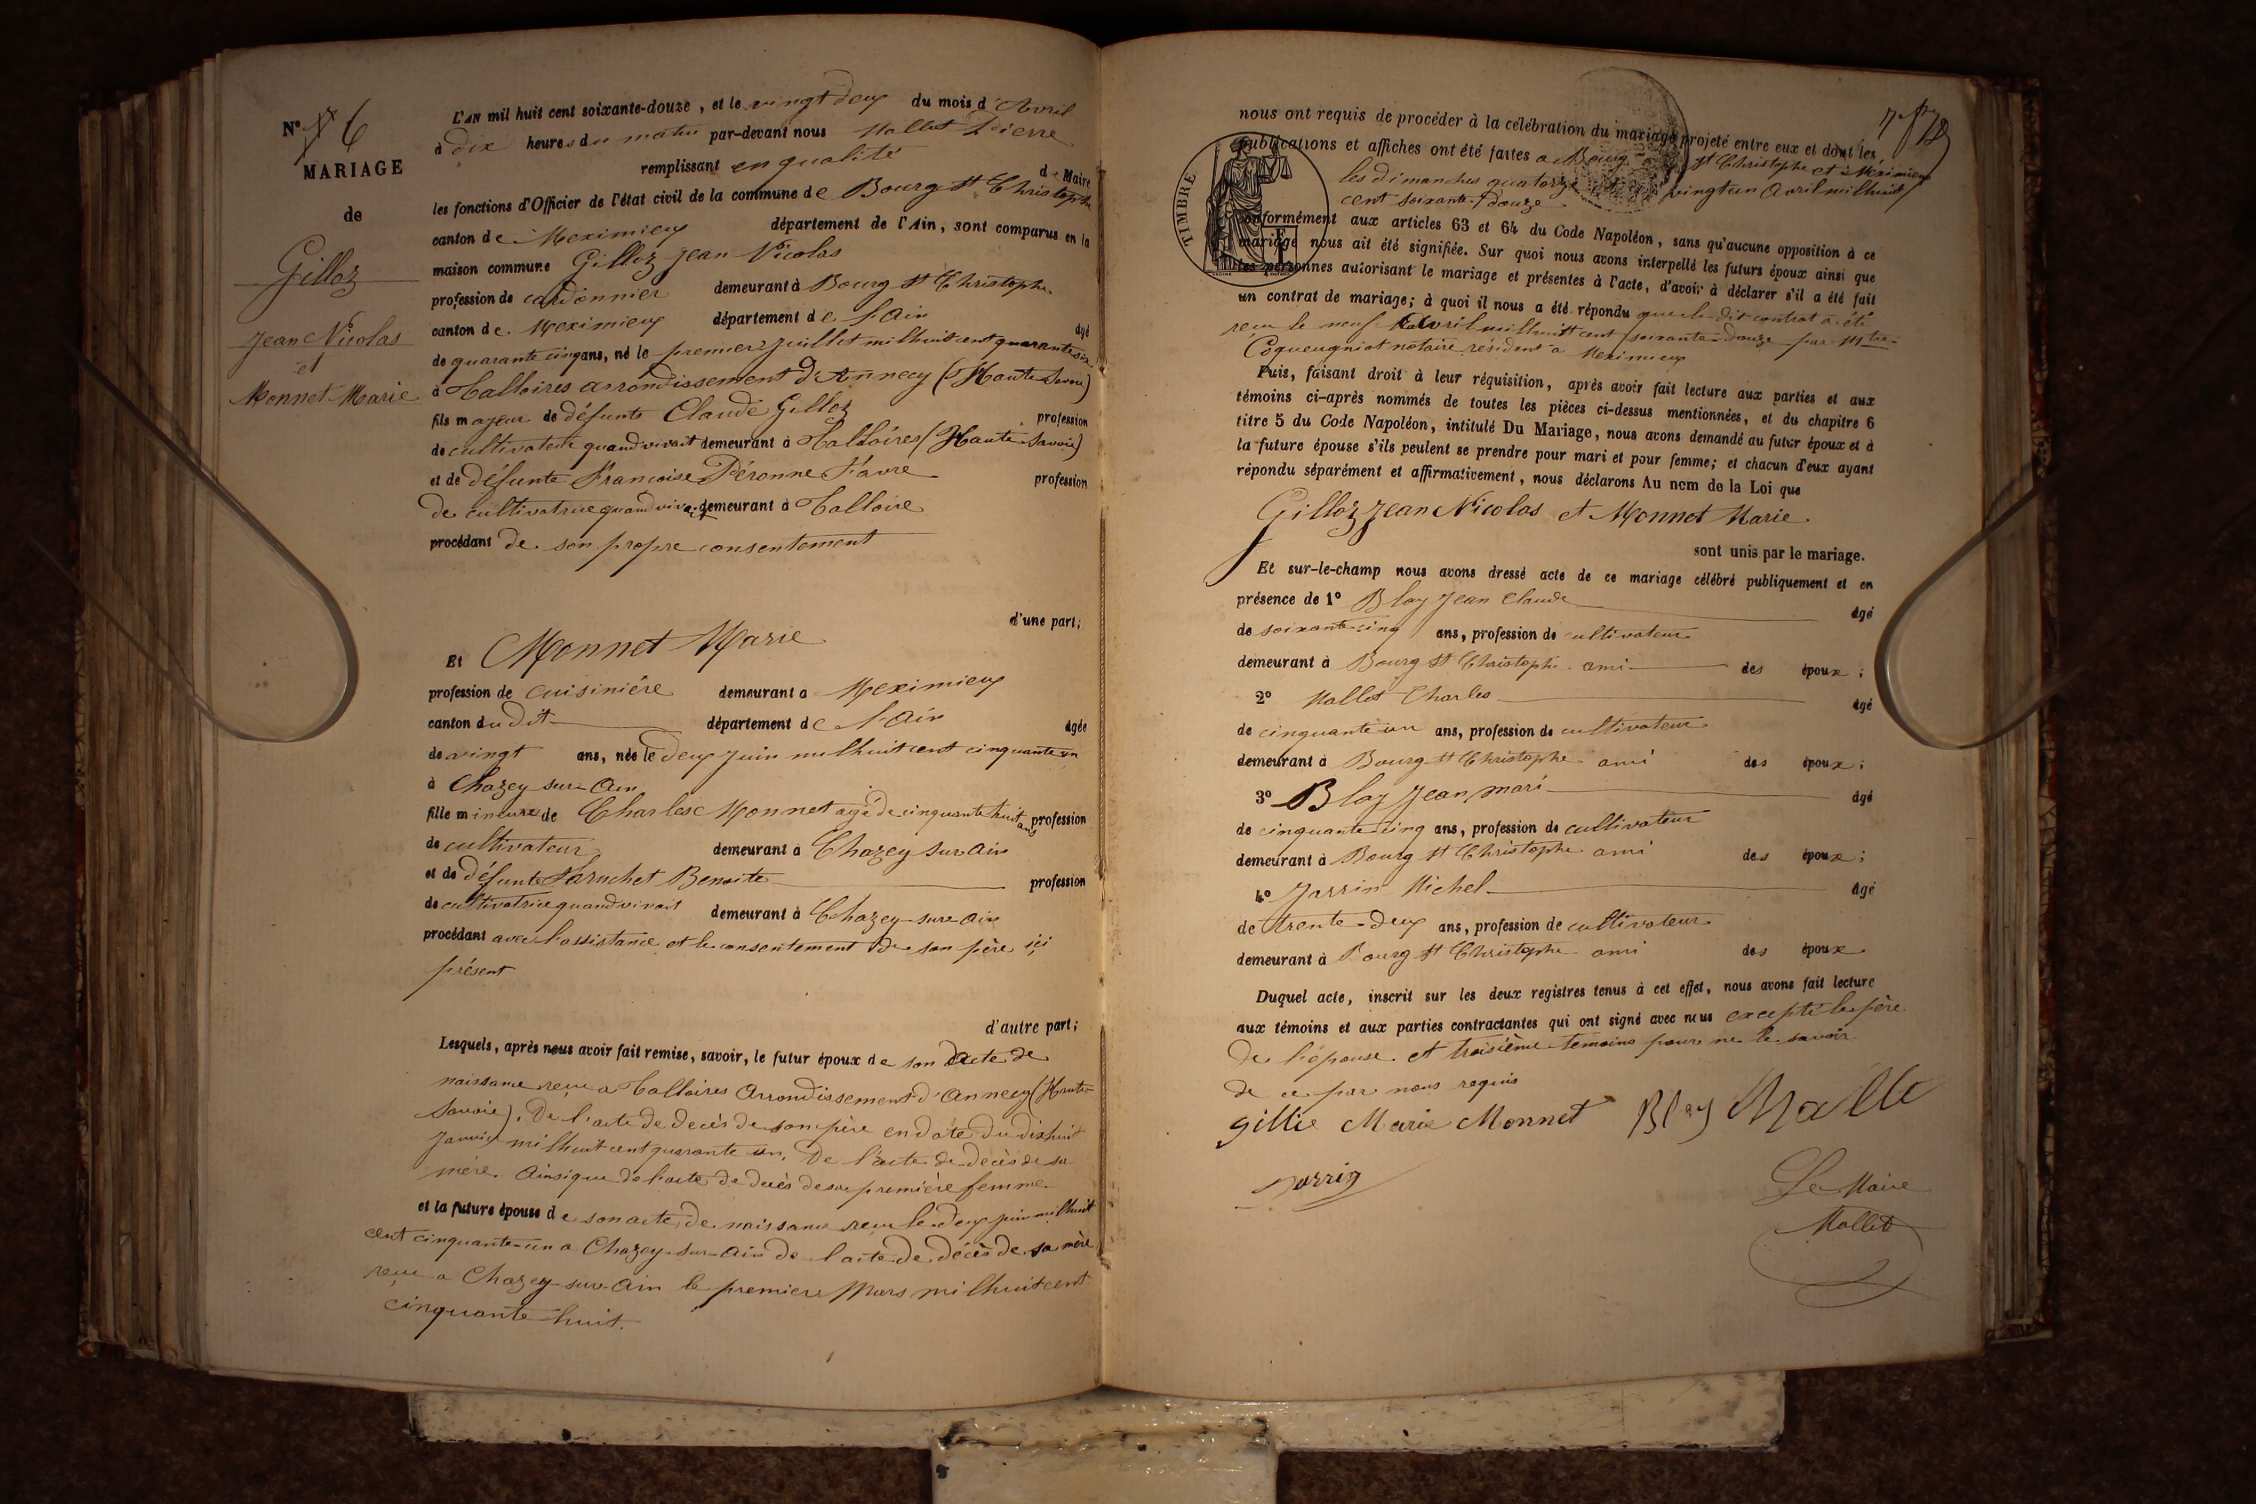 N° 6
MARIAGE
de
Gilloz
Jean Nicolas
et
Monnet Marie
L'AN mil huit cent soixante-douze, et le vingt deux du mois d'Avril
à dix heures du matin par-devant nous Mallet Pierre
remplissant en qualité de Maire
les fonctions d'Officier de l'état civil de la commune de Bourg St Christophe
canton de Meximieux département de l'Ain, sont comparus en la
maison commune Gilloz Jean Nicolas
profession de cordonnier demeurant à Bourg St Christophe
canton de Meximieux département de l'Ain âgé
de quarante cinq ans, né le premier juillet mil huit cent
à Talloires arrondissement d'Annecy (Haute Savoie)
fils majeur de défunt Claude Gilloz profession
de cultivateur quand vivait demeurant à Talloires (Haute-Savoie)
et de défunte Françoise Péronne Favre profession
de cultivatrice quand vivait demeurant à Talloire
procédant de son propre consentement
d'une part;
Et Monnet Marie
profession de cuisinière demeurant a Meximieux
canton dudit département de l'Ain âgée
de vingt ans, née le deux Juin mil huit cent cinquante un
à Chazey-sur-Ain
fille mineure de Charles Monnet agé de cinquante huit ans profession
de cultivateur demeurant à Chazey sur Ain
et de défunte Benoite profession
de cultivatrice quand vivait demeurant à Chazey-sur-Ain
procédant avec l'assistance et le consentement de son père ici
présent
d'autre part;
Lesquels, après nous avoir fait remise, savoir, le futur époux de son acte de
naissance reçu a Talloires Arrondissement d'Annecy (Haute-
Savoie). De l'acte de decès de son père en date du dix huit
Janvier mil huit cent quarante un. De l'acte de decès de sa
mère. Ainsi que de l'acte de decès de sa première femme.
et la future épouse de son acte de naissance reçu le deux juin mil huit
cent cinquante-un a Chazey-sur-Ain de l'acte de décès de sa mère
reçu a Chazey-sur-Ain le premier Mars mil huit cent
cinquante-huit.
nous ont requis de procéder à la célébration du mariage projeté entre eux et dont les
publications et affiches ont été faites a Bourg St Christophe et à Meximieux
les dimanches quatorze et vingt un Avril mil huit
cent soixante-douze
TIMBRE
conformément aux articles 63 et 64 du Code Napoléon, sans qu'aucune opposition à ce
mariage nous ait été signifiée. Sur quoi nous avons interpellé les futurs époux ainsi que
les personnes autorisant le mariage et présentes à l'acte, d'avoir à déclarer s'il a été fait
un contrat de mariage; à quoi il nous a été répondu que le dit contrat a été
reçu le neuf Avril mil huit cent soixante-douze par Mtre
Coqueugniot notaire résident a Meximieux
Puis, faisant droit à leur réquisition, après avoir fait lecture aux parties et aux
témoins ci-après nommés de toutes les pièces ci-dessus mentionnées, et du chapitre 6
titre 5 du Code Napoléon, intitulé Du Mariage, nous avons demandé au futur époux et à
la future épouse s'ils veulent se prendre pour mari et pour femme; et chacun d'eux ayant
répondu séparément et affirmativement, nous déclarons Au nom de la Loi que
Gilloz Jean Nicolas et Monnet Marie.
sont unis par le mariage.
Et sur-le-champ nous avons dressé acte de ce mariage célébré publiquement et en
présence de 1° Blay Jean Claude âgé
de soixante-cinq ans, profession de cultivateur
demeurant à Bourg St Christophe ami des époux;
2° Mallet Charles âgé
de cinquante un ans, profession de cultivateur
demeurant à Bourg St Christophe ami des époux;
3° Blay Jean mari âgé
de cinquante cinq ans, profession de cultivateur
demeurant à Bourg St Christophe ami des époux;
4° Jarrin Michel âgé
de trente-deux ans, profession de cultivateur
demeurant à Bourg St Christophe ami des époux
Duquel acte, inscrit sur les deux registres tenus à cet effet, nous avons fait lecture
aux témoins et aux parties contractantes qui ont signé avec nous excepté le père
de l'épouse et troisième temoins pour ne le savoir
de ce par nous requis
gillie Marie Monnet Blay Malle
Jarrin
Le Maire
Mallet